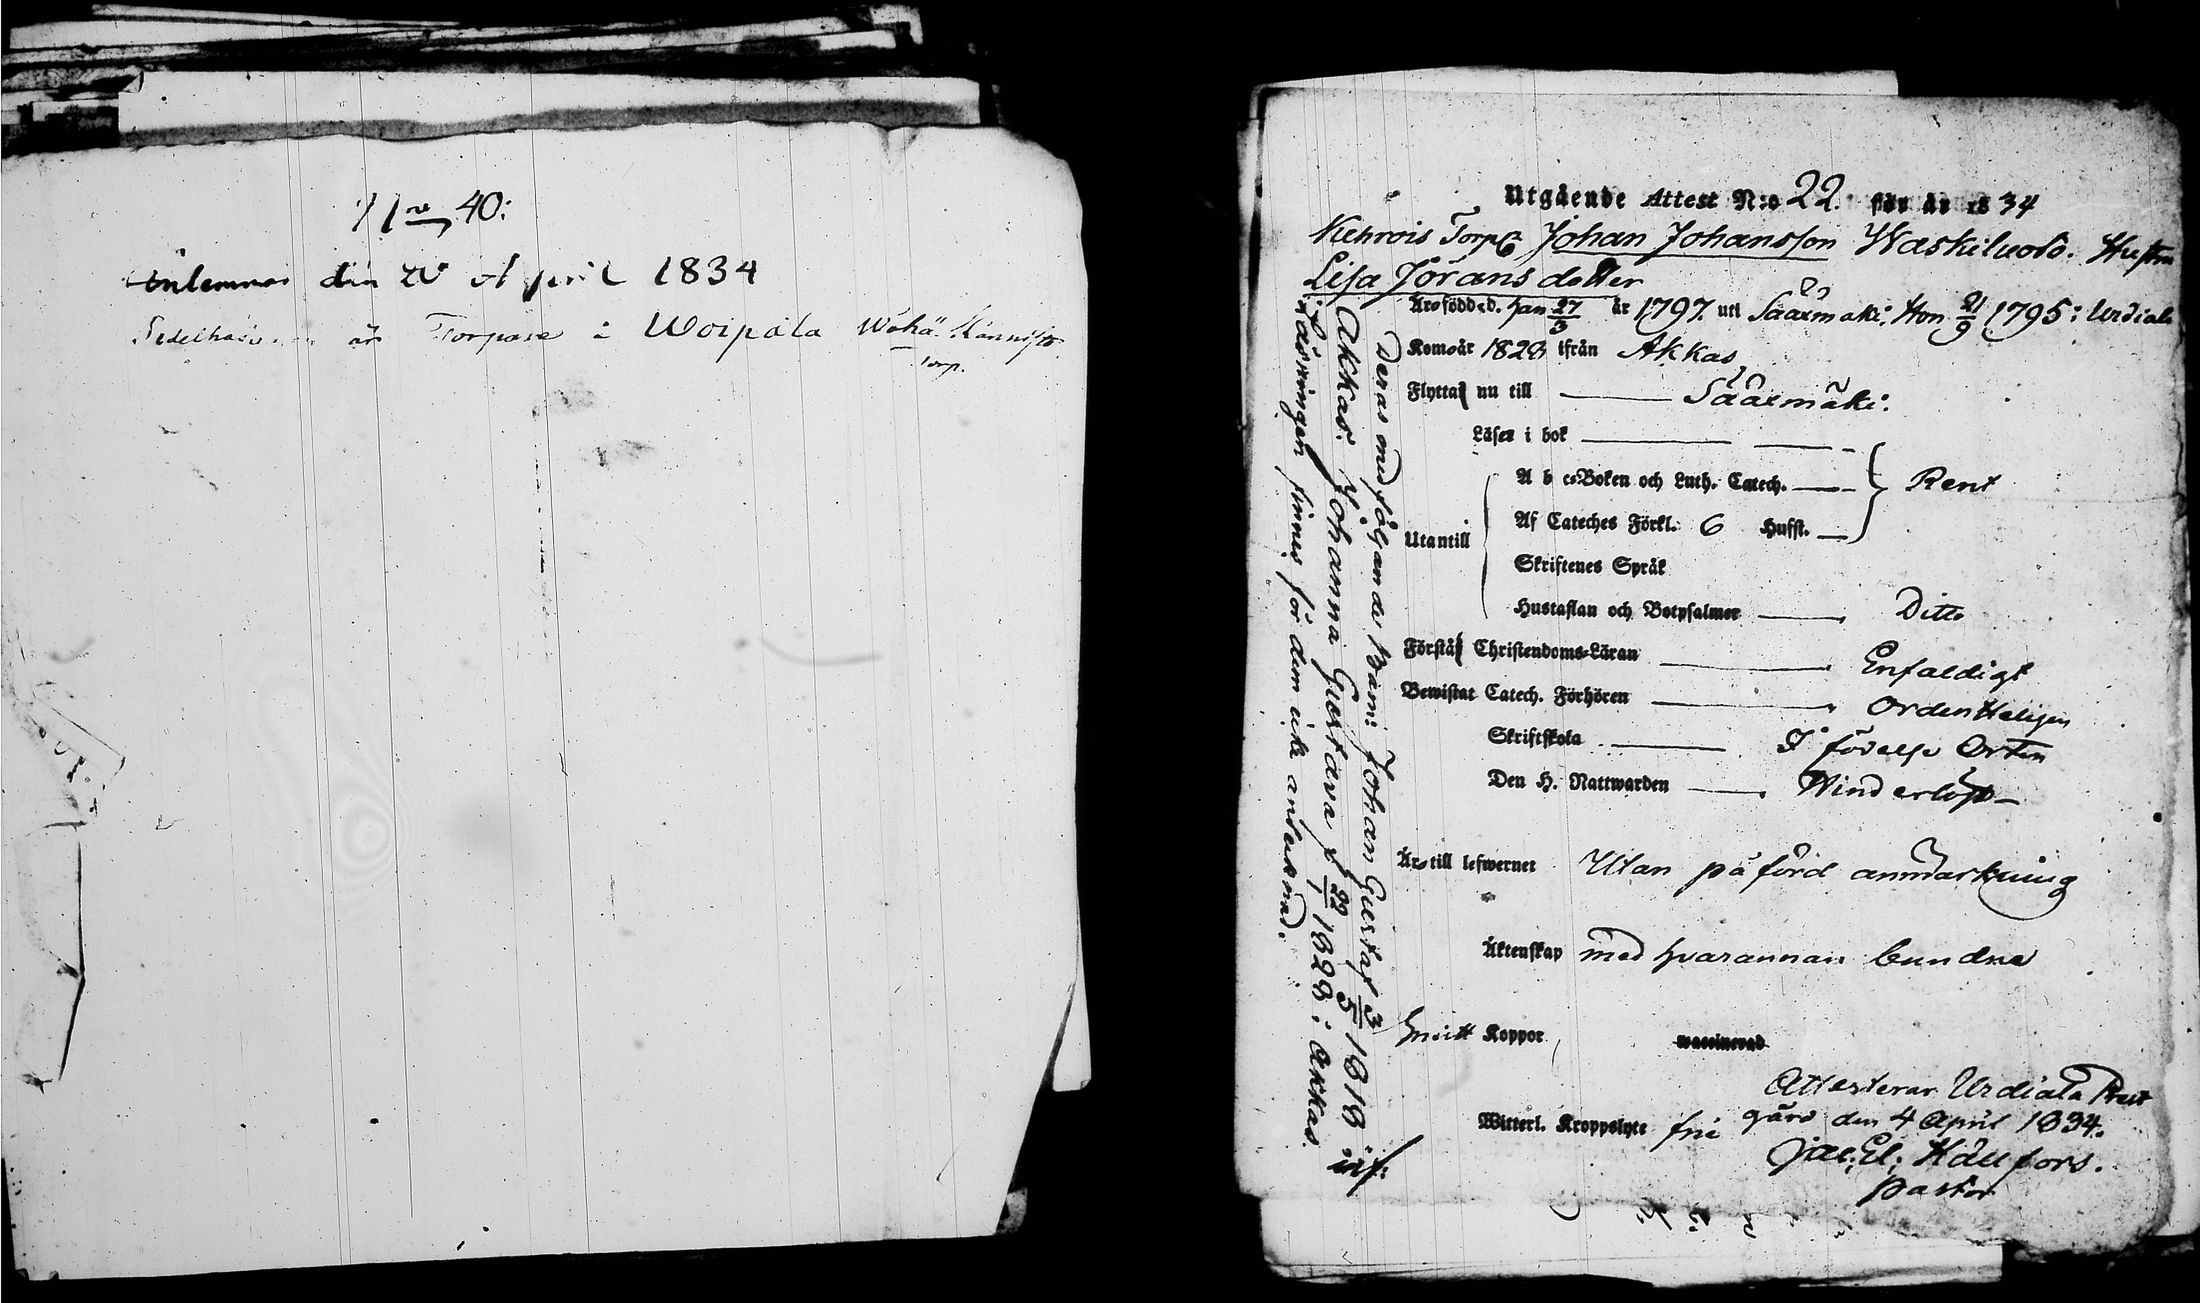 N:o 40:
Inlemnad den 20 April 1834
Sedelhafvaren är Torpare i Woipala Wähä Männistö
torp.
Utgående Attest N:o 22. för år 1834
Kehrois Torp. Johan Johansson Waskiluoto. Hustru
Lisa Jöransdotter
Äro födde d. han 27/3 år 1797 uti Sääxmäki. Hon 21/9 1795 i Urdiala
Kom år 1823 ifrån Akkas
Flyttar nu till Sääxmäki.
Läser i bok
A b c-Boken och Luth. Catech. Rent
Utantill
Af Cateches Förkl. 6 Hufst.
Skriftenes Språk
Hustaflan och Botpsalmer Ditto
Förstår Christendoms-Läran Enfaldigt
Bewistat Catech. Förhören Ordenteligen
Skriftskola I födelse Orten
Den H. Nattwarden
Äro till lefwernet Utan påförd anmärkning
Äktenskap med hvarannan bundne
Koppor waccinerad
Witterl. Kroppslyte frie
Attesterar Urdiala Prest
gård den 4 April 1834.
Jac. El. Hällfors.
Pastor
Deras medföljande Barn: Johan Gustaf 3/5 1818 i
Akkas. Johanna Gustava f 22/1 1823 i Akkas.
finnes för dem icke antecknad.